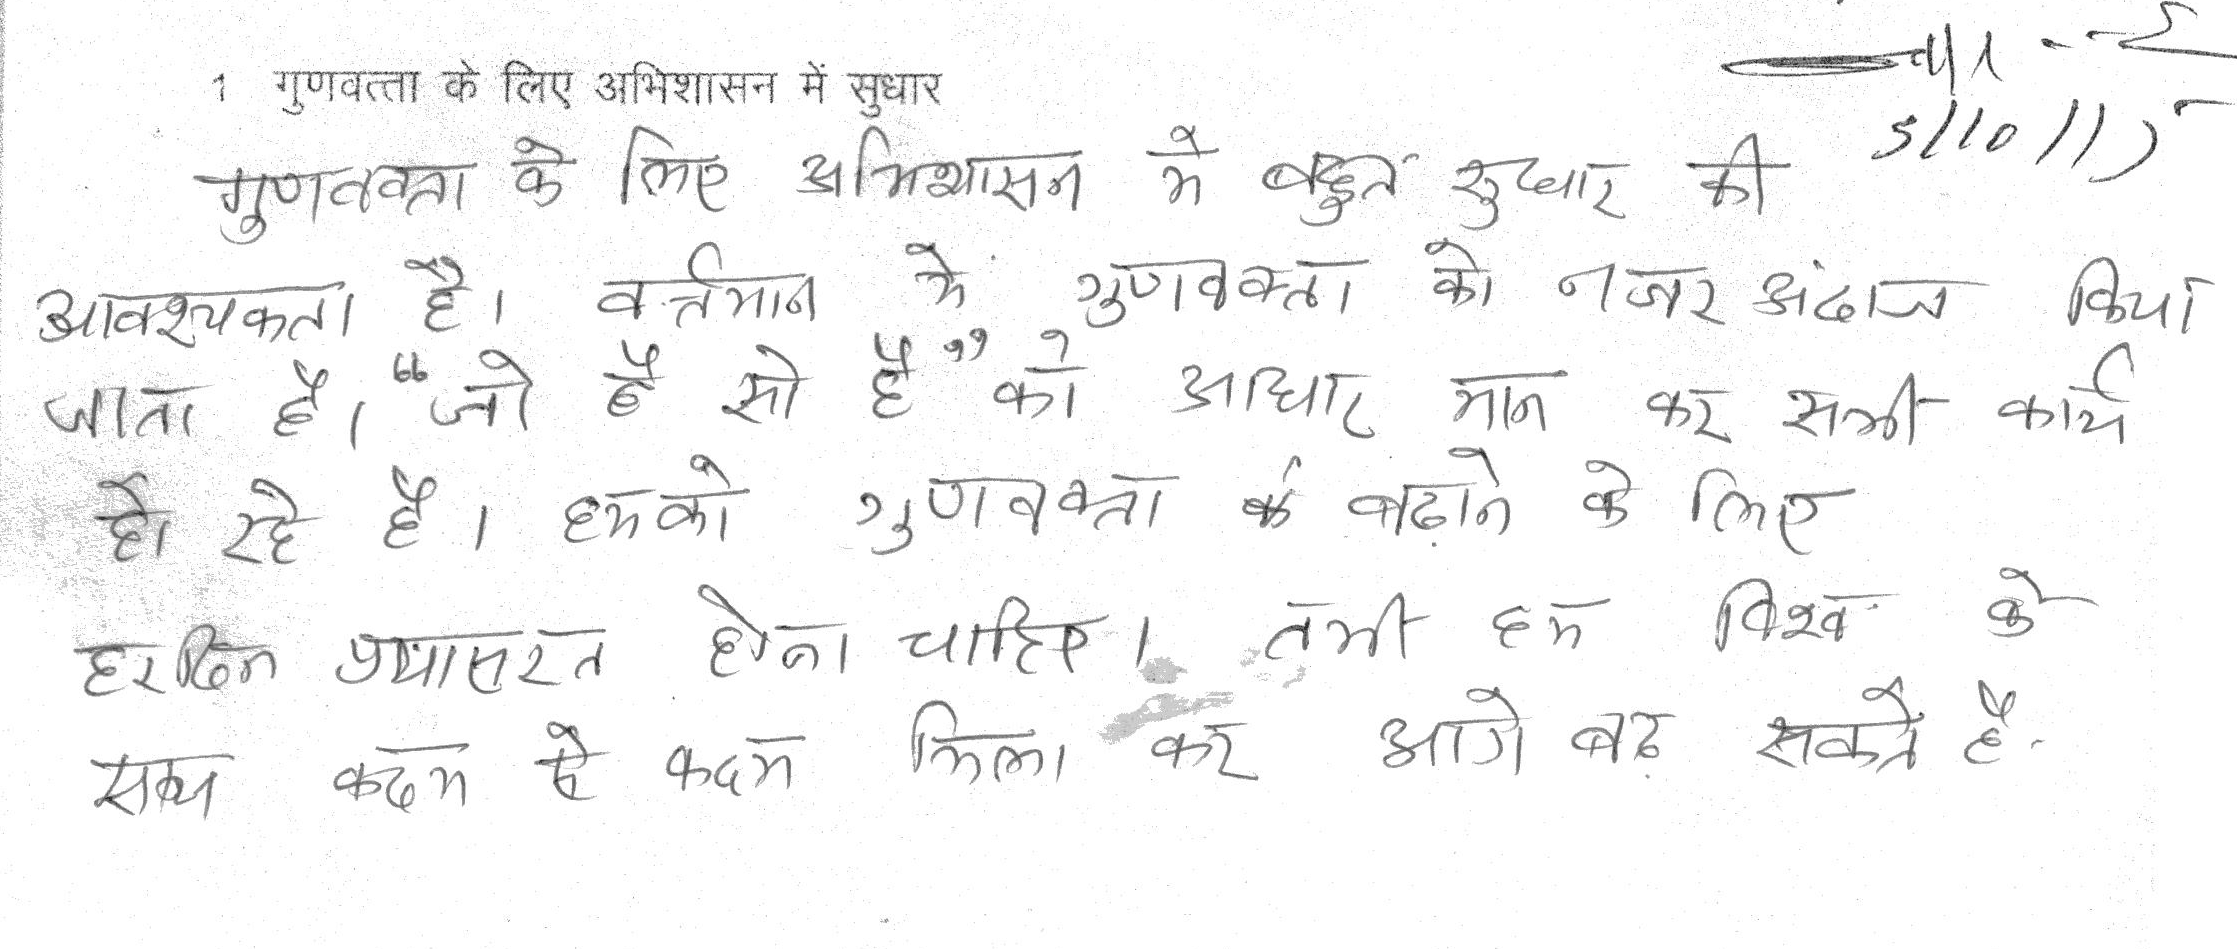 1 गुणवत्ता के लिए अभिशासन में सुधार
गुणवक्ता के लिए अभिशासन मे बहुत सुधार की
आवश्यकता है। वर्त्तमान मे गुणवक्ता को नजर अंदाज किया
जाता है। “जो है सो है” को आधार मान कर सभी कार्य
हो रहे है। हमको गुणवक्ता के बढ़ाने के लिए
हरदिन प्रयासरत होना चाहिए। तभी हम विश्व के
साथ कदम से कदम मिला कर आगे बढ़ सकते है.